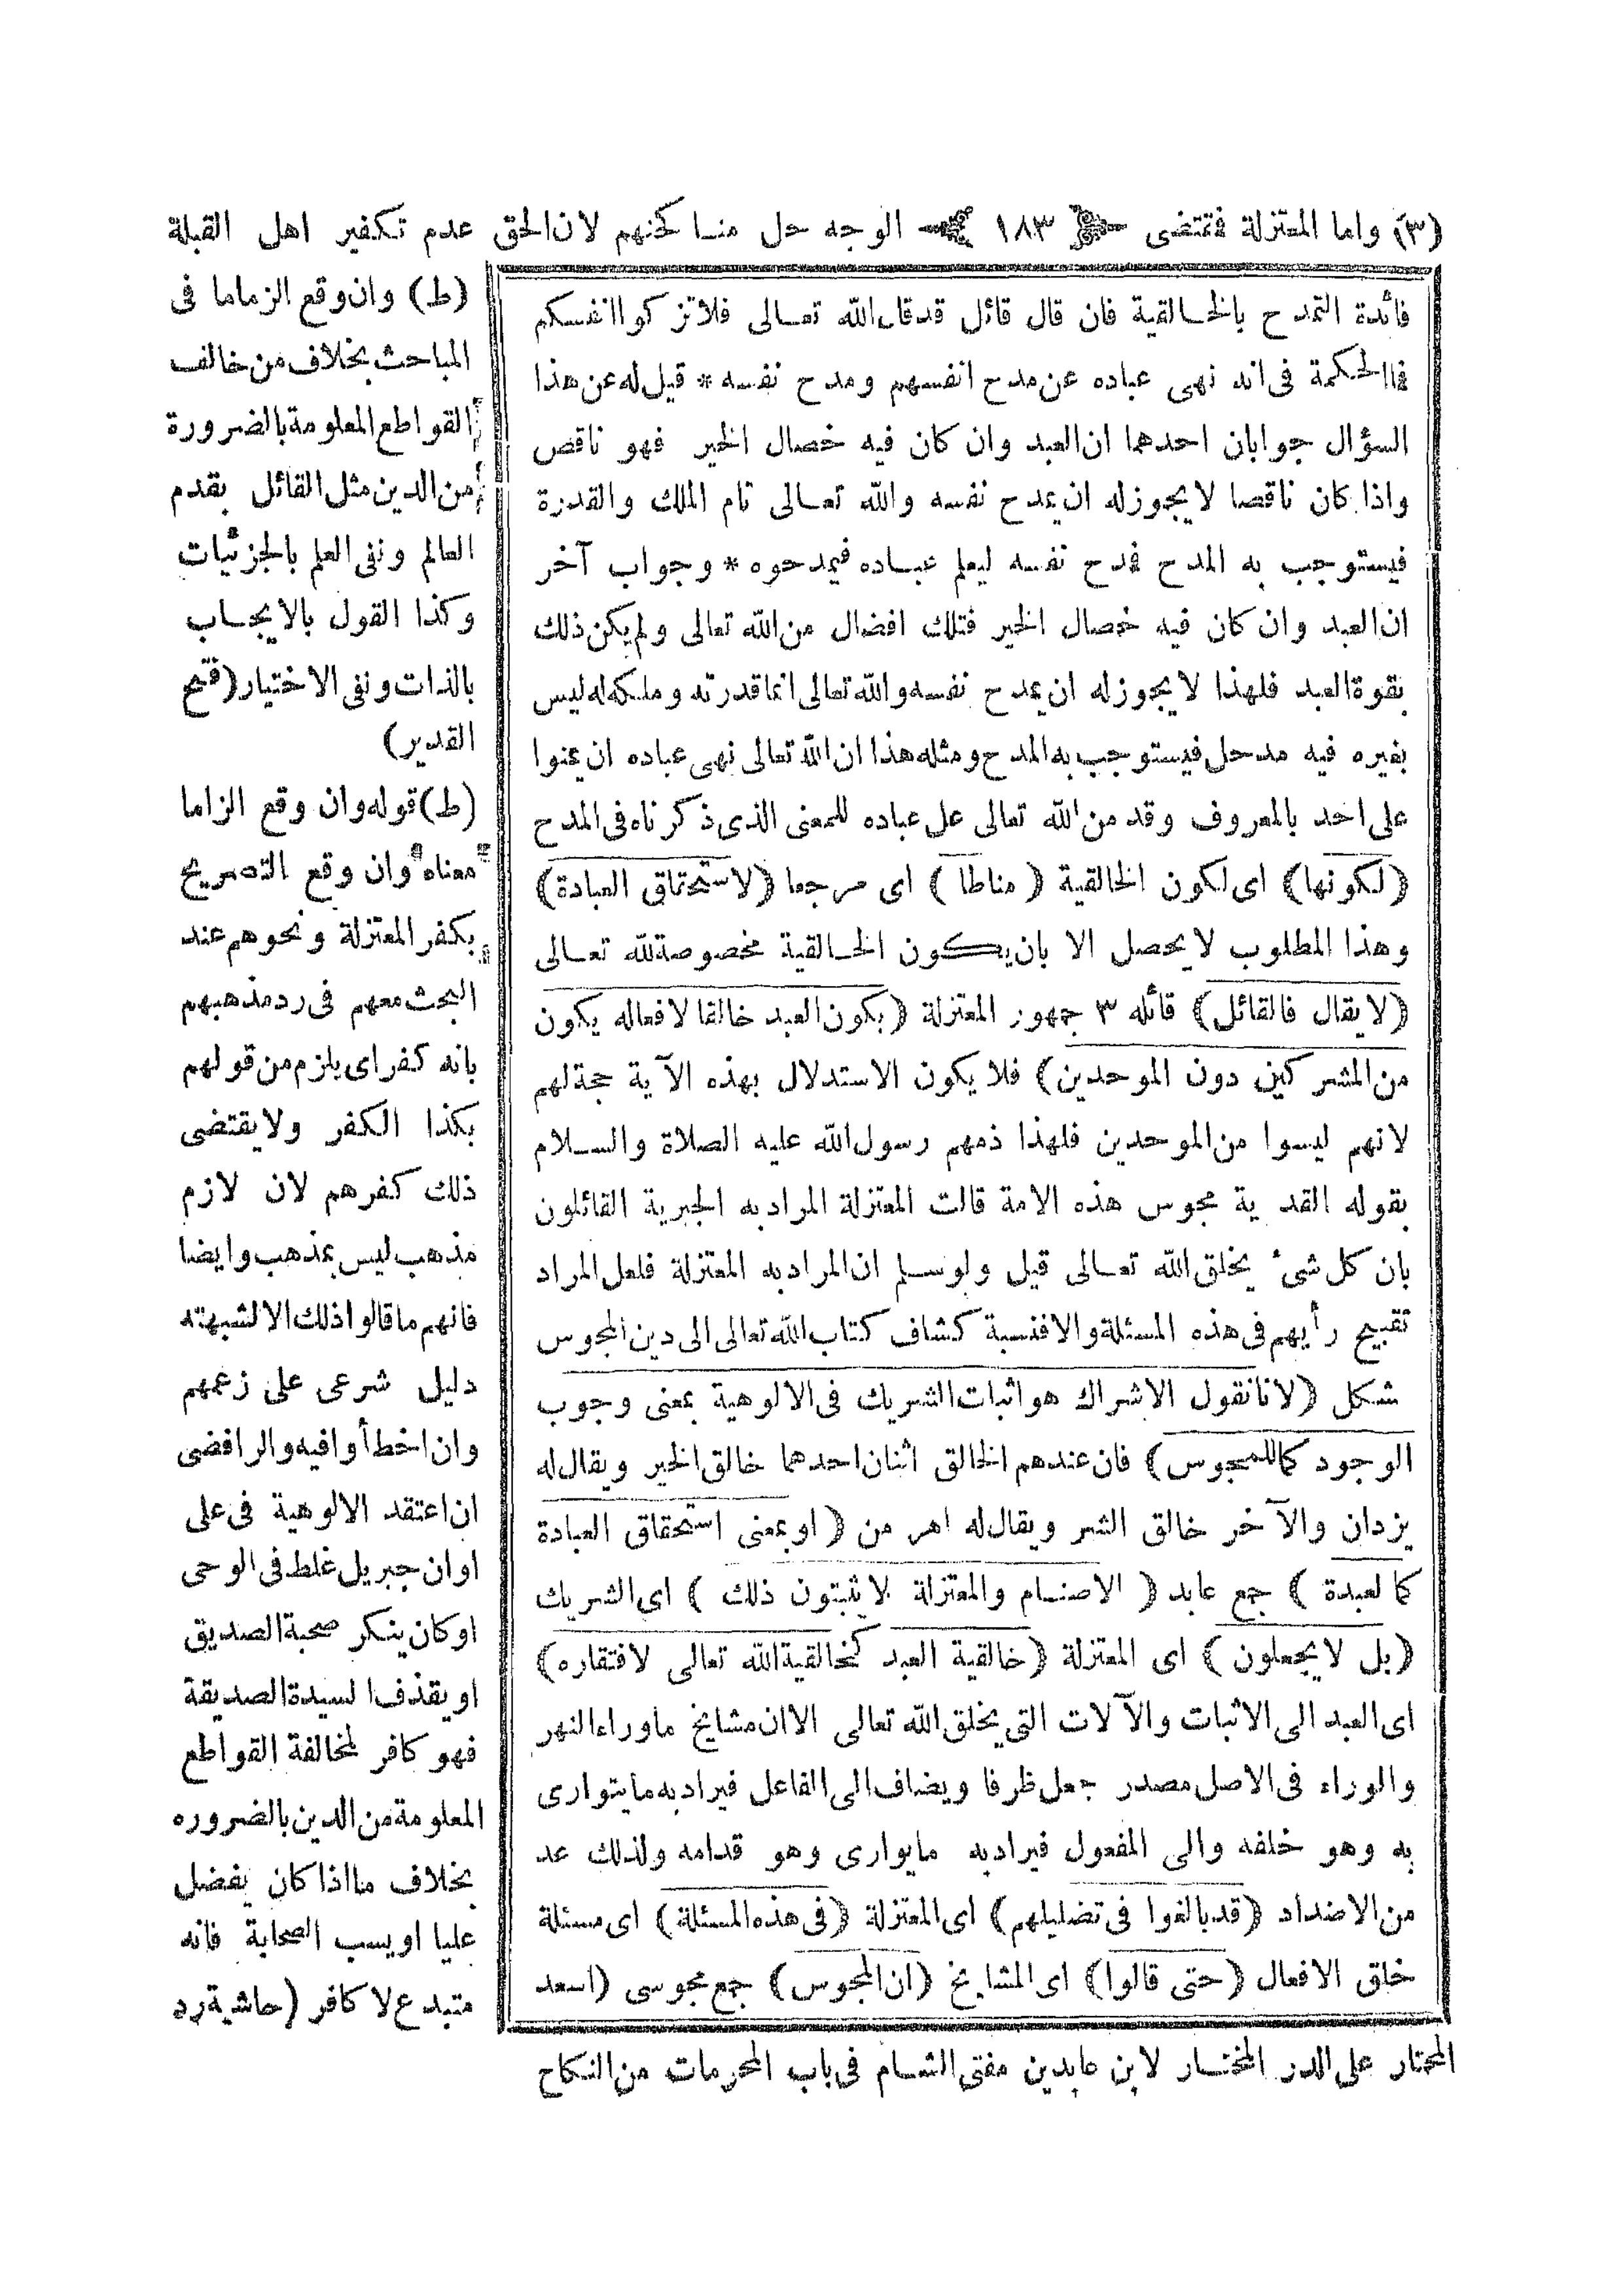 (٣) واما المعتزلة فتمتضى ﴿ ١٨٣ ﴾ الوجه حل مناكحتهم لان الحق عدم تكفير اهل القبلة
فائدة التمدح بالخالقية فان قال قائل قدقال الله تعالى فلاتزكوا انفسكم
فاالحكمة فى انه نهى عباده عن مدح انفسهم ومدح نفسه * قيل له عن هذا
السؤال جوابان احدهما ان العبد وان كان فيه خصال الخير فهو ناقص
واذا كان ناقصا لايجوزله ان يمدح نفسه والله تعالى تام الملك والقدرة
فيستوجب به المدح فمدح نفسه ليعلم عباده فيمدحوه * وجواب آخر
ان العبد وان كان فيه خصال الخير فتلك افضال من الله تعالى ولم يكن ذلك
بقوة العبد فلهذا لايجوزله ان يمدح نفسه والله تعالى انما قدرته وملكه له ليس
بغيره فيه مدخل فيستوجب به المدح ومثله هذا ان الله تعالى نهى عباده ان يمنوا
على احد بالمعروف وقد من الله تعالى عل عباده للمعنى الذى ذكرناه فى المدح
(لكونها) اى لكون الخالقية (مناطا) اى مرجعا (لاستحقاق العبادة)
وهذا المطلوب لايحصل الا بان يكون الخالقية مخصوصة لله تعالى
(لايقال فالقائل) قائله ٣ جمهور المعتزلة (بكون العبد خالقا لافعاله يكون
من المشركين دون الموحدين) فلا يكون الاستدلال بهذه الآية حجة لهم
لانهم ليسوا من الموحدين فلهذا ذمهم رسول الله عليه الصلاة والسلام
بقوله القد ية مجوس هذه الامة قالت المعتزلة المراد به الجبرية القائلون
بان كل شىء بخلق الله تعالى قيل ولوسلم ان المراد به المعتزلة فلعل المراد
تقبيح رأيهم فى هذه المسئلة والافنسبة كشاف كتاب الله تعالى الى دين المجوس
شكل (لانا نقول الاشراك هو اثبات الشريك فى الالوهية بمعنى وجوب
الوجود كماللمجوس) فان عندهم الخالق اثنان احدهما خالق الخير ويقال له
يزدان والآخر خالق الشر ويقال له اهر من (او بمعنى استحقاق العبادة
كما لعبدة) جمع عابد (الاصنام والمعتزلة لايثبتون ذلك) اى الشريك
(بل لايجعلون) اى المعتزلة (خالقية العبد كخالقية الله تعالى لافتقاره)
اى العبد الى الاثبات والآلات التى يخلق الله تعالى الا ان مشايخ ماوراء النهر
والوراء فى الاصل مصدر جعل ظرفا ويضاف الى الفاعل فيراد به مايتوارى
به وهو خلفه والى المفعول فيراد به مايوارى وهو قدامه ولذلك عد
من الاضداد (قدبالغوا فى تضليلهم) اى المعتزلة (فى هذه المسئلة) اى مسئلة
خلق الافعال (حتى قالوا) اى المشايخ (ان المجوس) جمع مجوسى (اسعد
(ط) وان وقع الزماما فى
المباحث بخلاف من خالف
القواطع المعلومة بالضرورة
من الدين مثل القائل بقدم
العالم ونفى العلم بالجزئيات
وكذا القول بالايجاب
بالذات ونفى الاختيار (فتح
القدير)
(ط) قوله وان وقع الزاما
معناه وان وقع التصريح
بكفر المعتزلة ونحوهم عند
البحث معهم فى رد مذهبهم
بانه كفر اى يلزم من قولهم
بكذا الكفر ولايقتضى
ذلك كفرهم لان لازم
مذهب ليس بمذهب وايضا
فانهم ماقالوا ذلك الا لشبهته
دليل شرعى على زعمهم
وان اخطأوافيه والرافضى
ان اعتقد الالوهية فى على
اوان جبريل غلط فى الوحى
اوكان ينكر صحبة الصديق
او يقذف السيدة الصديقة
فهو كافر لمخالفة القواطع
المعلومة من الدين بالضروره
بخلاف مااذا كان يفضل
عليا او يسب الصحابة فانه
متبدع لا كافر (حاشية رد
المحتار على الدر المختار لابن عابدين مفتى الشام فى باب المحرمات من النكاح